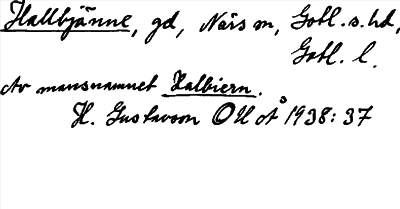 Hallbjänne, gd, Näs sn, Gotl. s. hd,
Gotl. l.
Av mansnamnet Halbiern.
H. Gustavson OUÅ 1938: 37